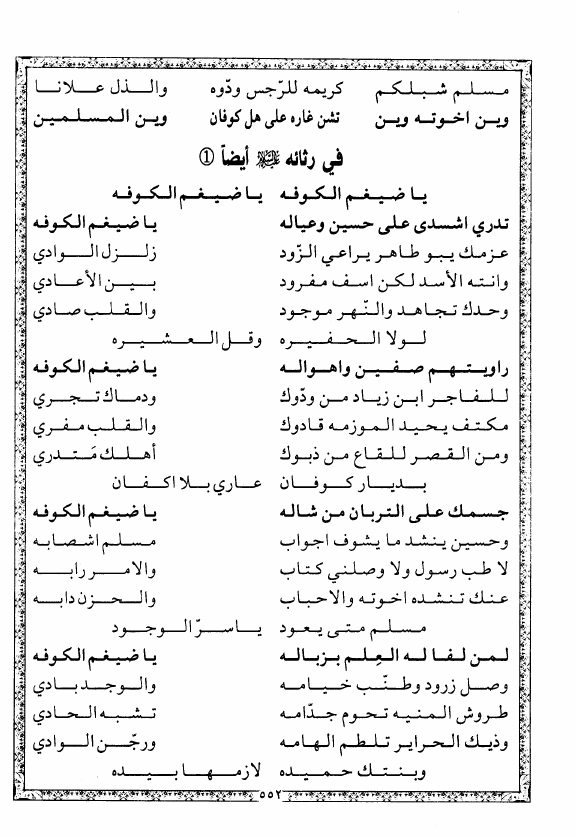 مسلم شبلكم كريمه للرّجس ودّوه والذل علانا
وين اخوته وين تشن غاره على هل كوفان وين المسلمين
في رثائه ﵇ أيضاً ①
يا ضيغم الكوفه يا ضيغم الكوفه
تدري اشسدى على حسين وعياله يا ضيغم الكوفه
عزمك يبو طاهر يراعي الزّود زلزل الوادي
وانته الأسد لكن اسف مفرود بين الأعادي
وحدك تجاهد والنّهر موجود والقلب صادي
لولا الحفيره وقل العشيره
راويتهم صفين واهواله يا ضيغم الكوفه
للفاجر ابن زياد من ودّوك ودماك تجري
مكتف يحيد الموزمه قادوك والقلب مفري
ومن القصر للقاع من ذبوك أهلك مَتدري
بديار كوفان عاري بلا اكفان
جسمك على التربان من شاله يا ضيغم الكوفه
وحسين ينشد ما يشوف اجواب مسلم اشصابه
لا طب رسول ولا وصلني كتاب والامر رابه
عنك تنشده اخوته والاحباب والحزن دابه
مسلم متى يعود ياسرّ الوجود
لمن لفا له العِلم بزباله يا ضيغم الكوفه
وصل زرود وطنّب خيامه والوجد بادي
طروش المنيه تحوم جدّامه تشبه الحادي
وذيك الحراير تلطم الهامه ورجّن الوادي
وبنتك حميده لازمها بيده
٥٥٢